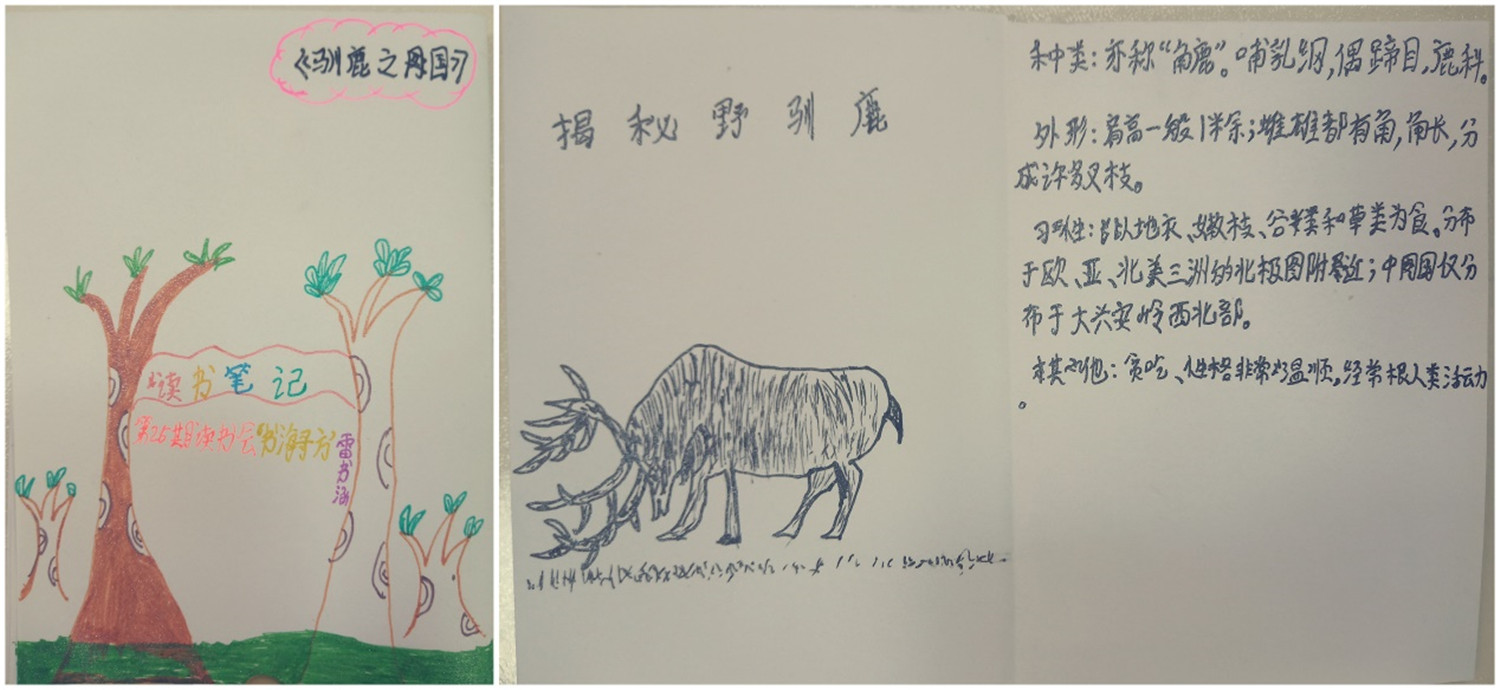 《驯鹿之国》
读书笔记
第25期读书会"书海寻方
雷书涵
揭秘野驯鹿
种类：亦称“角鹿”。哺乳纲，偶蹄目，鹿科。
外形：肩高一般1米余；雌雄都有角，角长，分
成许多叉枝。
习性：以地衣、嫩枝、谷类和草类为食。分布
于欧、亚、北美三洲的北极圈附近；中国仅分
布于大兴安岭西北部。
其他：贪吃、性格非常温顺。经常根人类活动
。